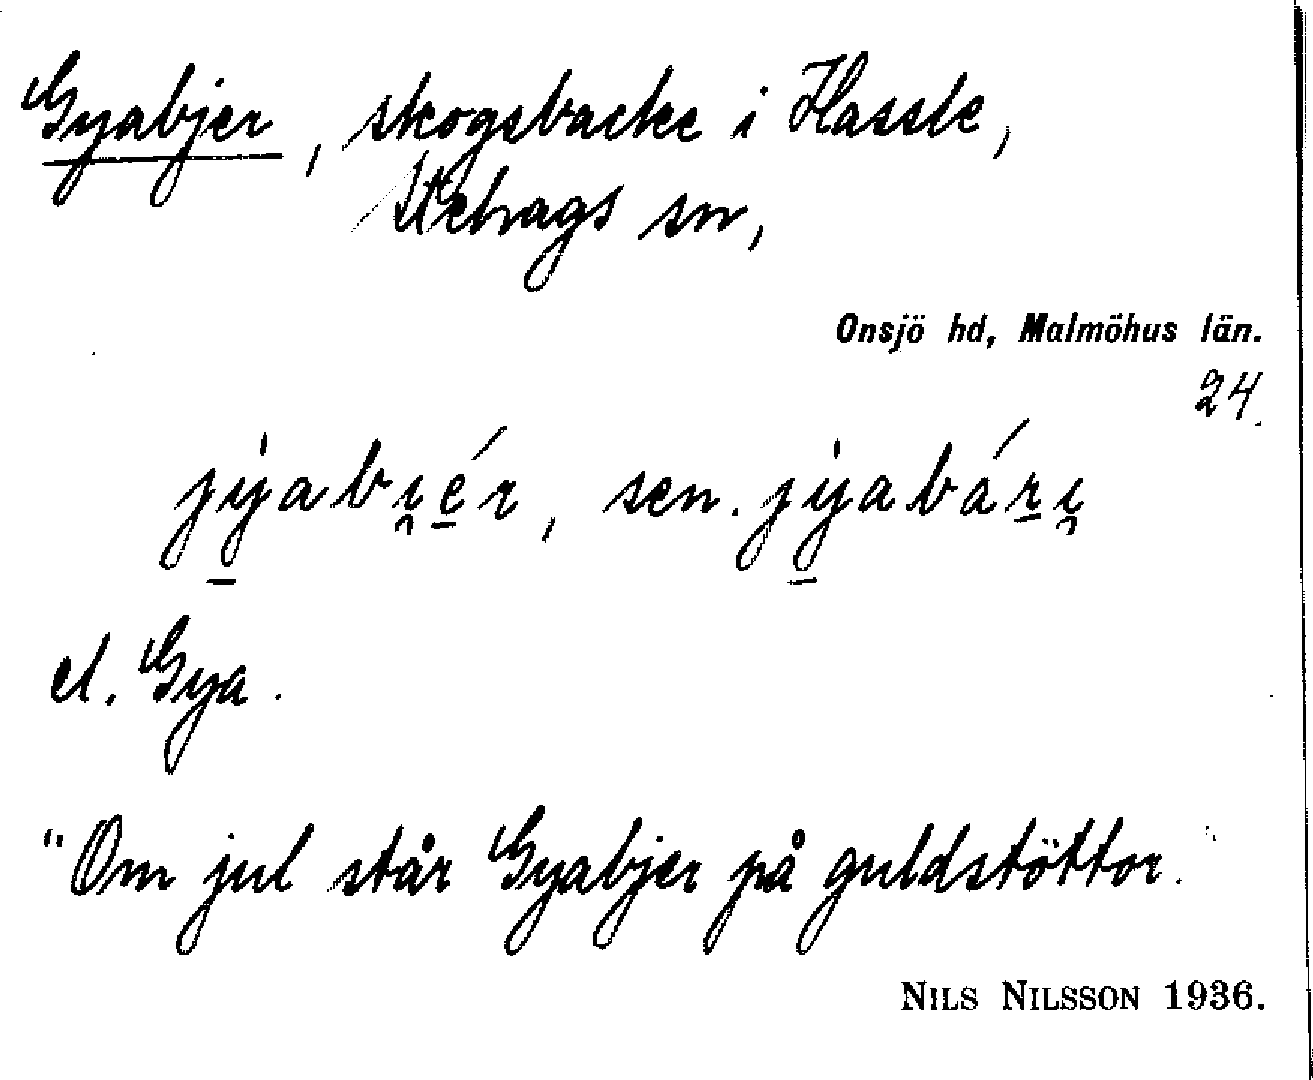 Gyabjer, skogsbacke i Hassle,
Stehags sn,
Onsjö hd, Malmöhus län.
24.
jy̠abi̯é̠r, sen. jy̠abár̠i̯
el. Gya.
"Om jul står Gyabjer på guldstöttor."
NILS NILSSON 1936.